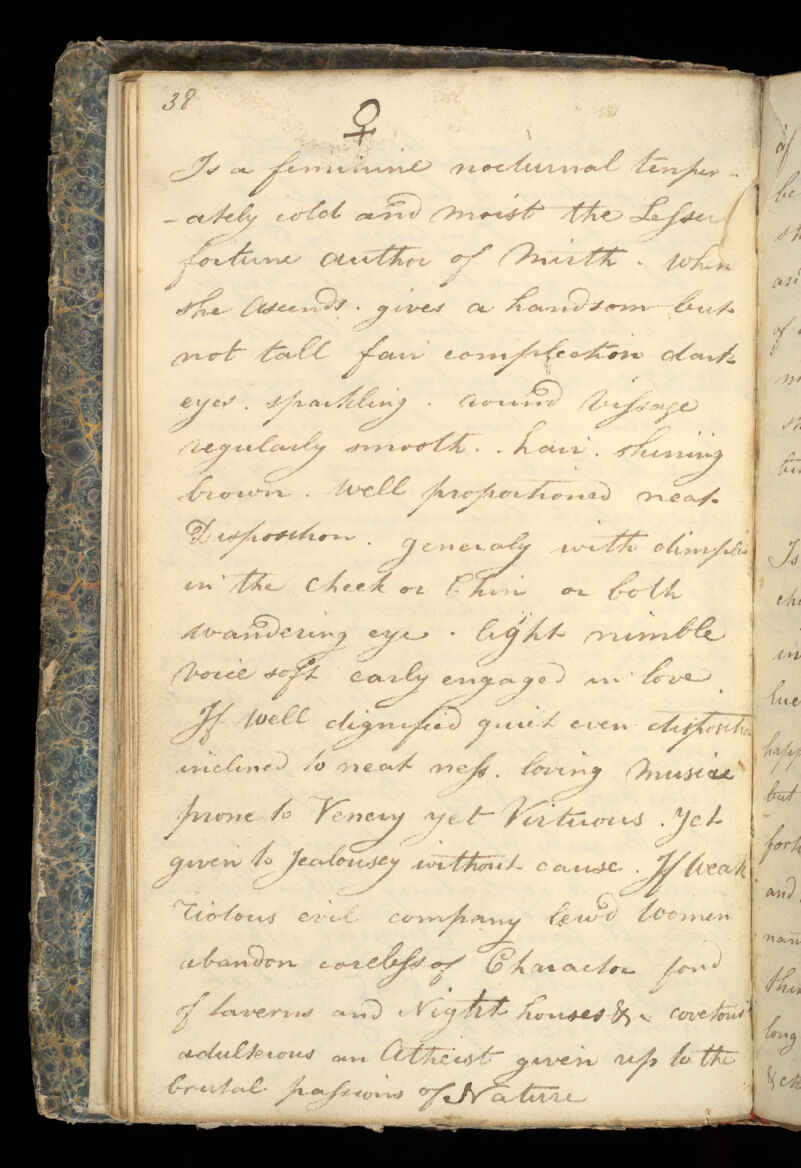 38
♀
Is a feminine nocturnal temper-
-ately cold and moist the Lesser
fortune author of Mirth . When
she Ascends . gives a handsom but
not tall fair complection dark
eyes . sparkling . round Vissage
regularly smooth . . hair . shining
brown . Well proportioned neat
Disposition . generaly with dimples
in the Cheek or Chin or both
wandering eye . light nimble
Voice soft early engaged in love .
If Well dignified quiet even disposition
inclined to neat ness . loving Musice
prone to Venery yet Virtuous . Yet
given to Jealousey without cause . If Weak
riotous evil company lewd Women
abandon careless of Character fond
of taverns and Night houses & covetous
adulterous an Atheist given up to the
brutal passions of Nature
of
be
Is
in
but
and
long